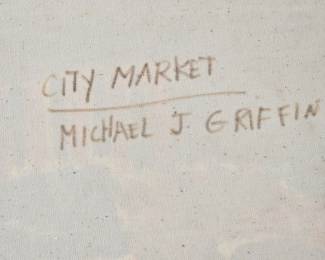 CITY MARKET
MICHAEL J GRIFFIN